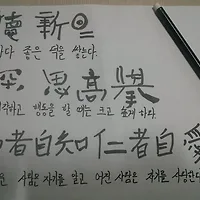 新
좋은 덕을 쌓는다.
深思高擧
각하고 행동을 할 때는 크고 높게 하라
者自知仁者自愛
사람은 자기를 알고 어진 사람은 자기를 사랑한다